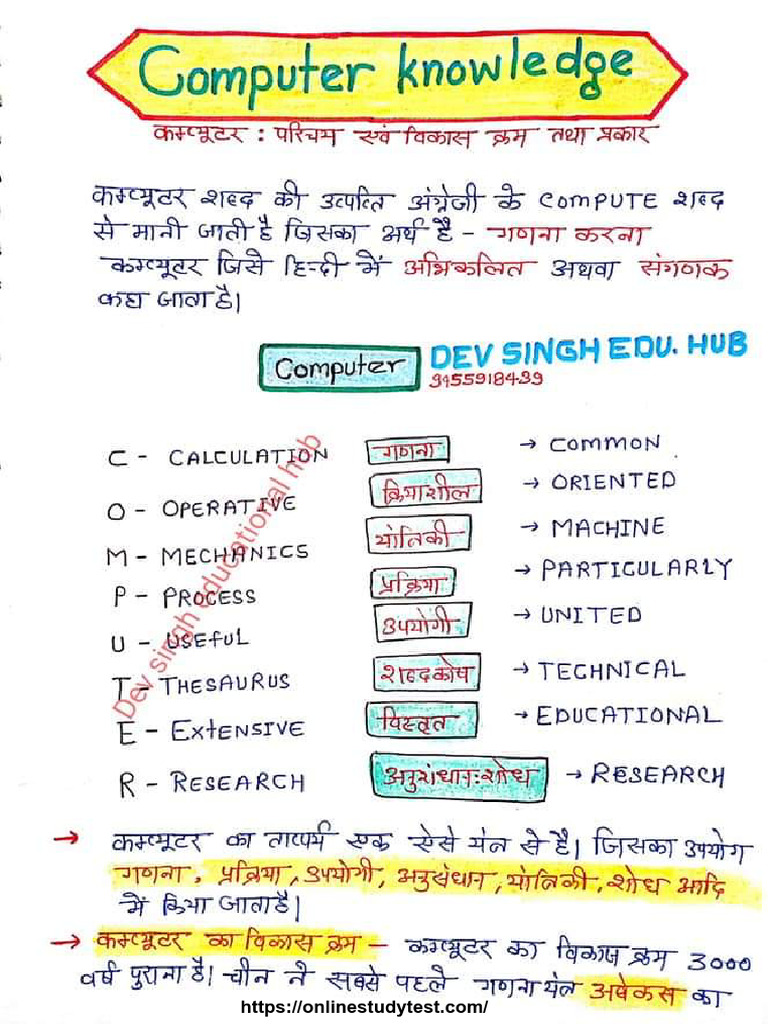 Computer knowledge
कम्प्यूटर : परिचय एवं विकास क्रम तथा प्रकार
कम्प्यूटर शब्द की उत्पत्ति अंग्रेजी के COMPUTE शब्द
से मानी जाती है जिसका अर्थ है - गणना करना
कम्प्यूटर जिसे हिन्दी में अभिकलित्र अथवा संगणक
कहा जाता है।
Computer DEV SINGH EDU. HUB
9455918439
C - CALCULATION गणना → COMMON
O - OPERATIVE क्रियाशील → ORIENTED
M - MECHANICS यांत्रिकी → MACHINE
P - PROCESS प्रक्रिया → PARTICULARLY
U - USEFUL उपयोगी → UNITED
T - THESAURUS शब्दकोष → TECHNICAL
E - EXTENSIVE विस्तृत → EDUCATIONAL
R - RESEARCH अनुसंधान:शोध → RESEARCH
Dev singh educational hub
→ कम्प्यूटर का तात्पर्य एक ऐसे यंत्र से है। जिसका उपयोग
गणना, प्रक्रिया, उपयोगी, अनुसंधान, यांत्रिकी, शोध आदि
में किया जाता है।
→ कम्प्यूटर का विकास क्रम - कम्प्यूटर का विकास क्रम 3000
वर्ष पुराना है। चीन ने सबसे पहले गणना यंत्र अबेकस का
https://onlinestudytest.com/